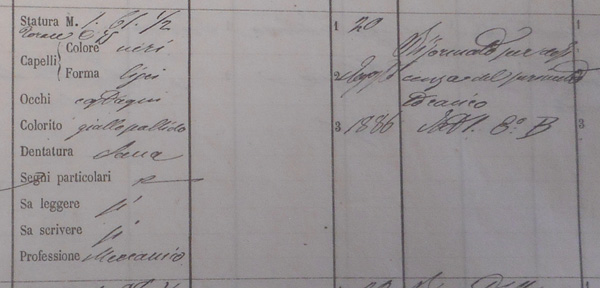 Statura M. 1. 61. 1/2
Torace 0,
Capelli Colore neri
Forma lisci
Occhi castagni
Colorito giallo pallido
Dentatura sana
Segni particolari
Sa leggere sì
Sa scrivere sì
Professione Meccanico
1 20
2 Agosto
3 1886
Riformato per defi
cenza del perimetro
toracico
Art. 8° B
1
2
3